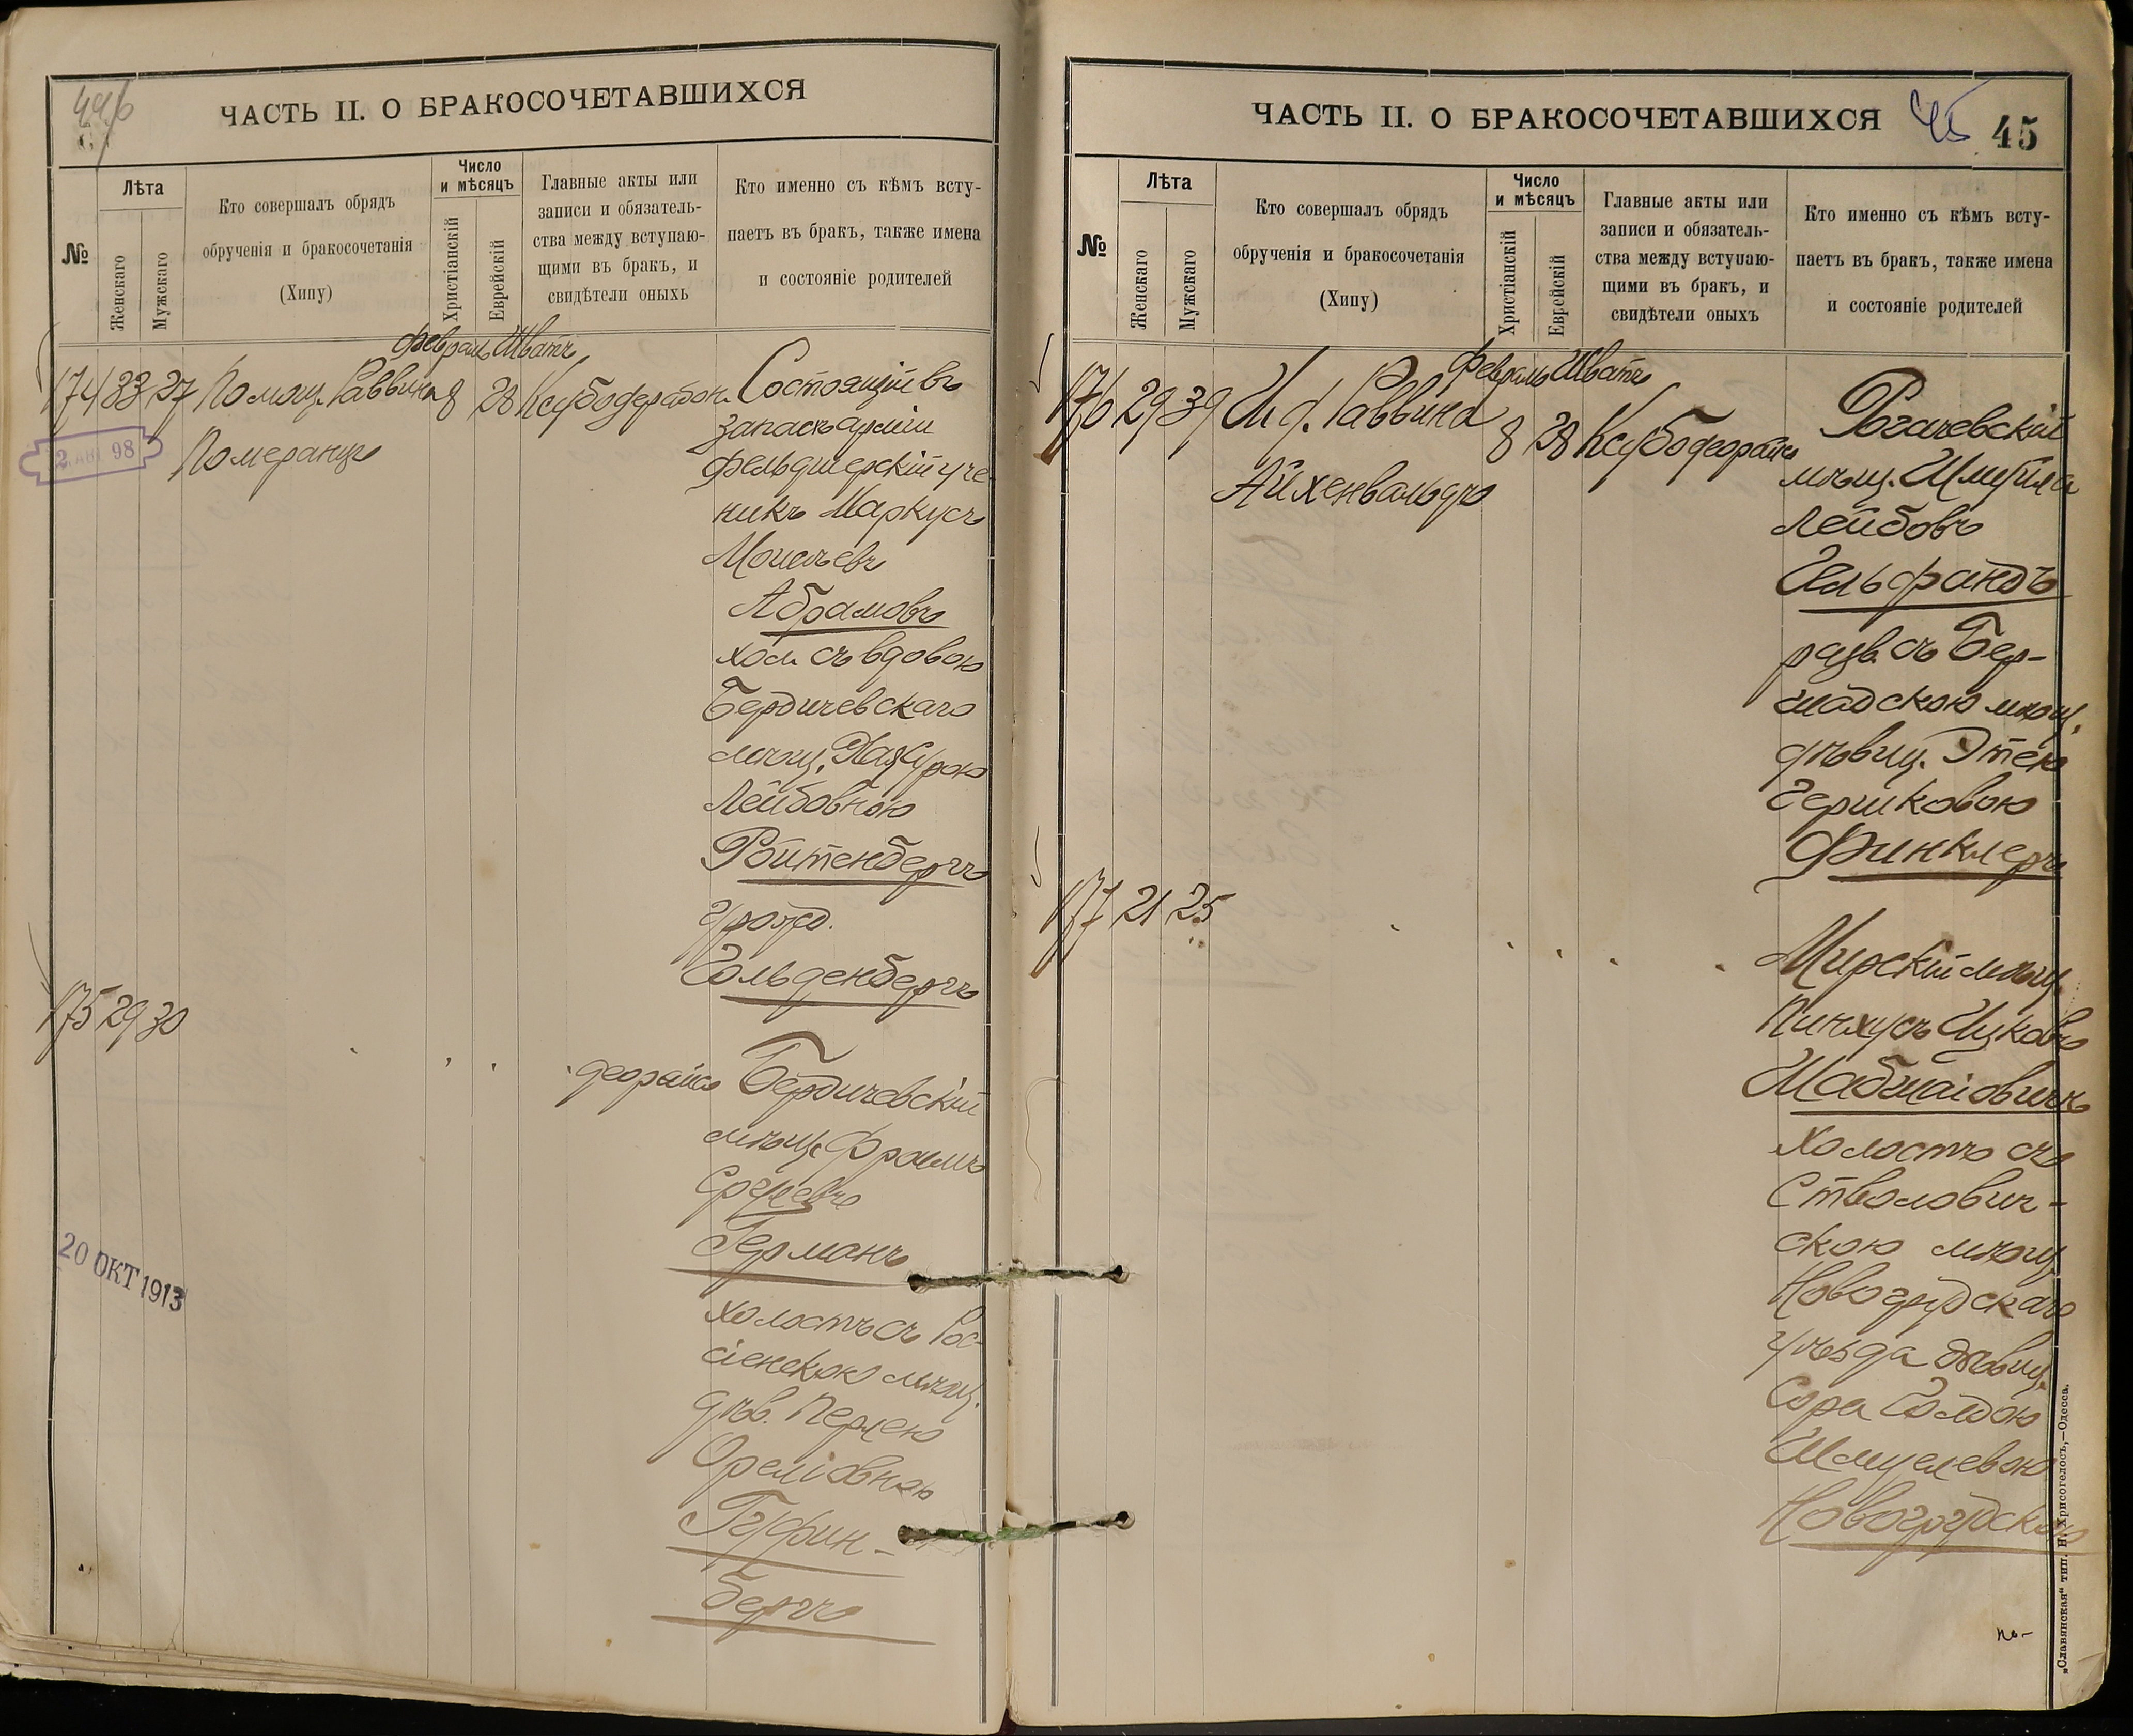 44б
ЧАСТЬ II. О БРАКОСОЧЕТАВШИХСЯ
№
Лѣта
Женскаго
Мужскаго
Кто совершалъ обрядъ
обрученія и бракосочетанія
(Хипу)
Число
и мѣсяцъ
Христіанскій
Еврейскій
Главные акты или
записи и обязатель-
ства между вступаю-
щими въ бракъ, и
свидѣтели оныхъ
Кто именно съ кѣмъ всту-
паетъ въ бракъ, также имена
и состояніе родителей
Февраль Шватъ
174 33 37 Помощ. Раввина 8 28 Ксубо
Померанцъ
98
Состоящій въ
запасѣ арміи
фельдшерскій уче-
никъ Маркусъ
Мошевъ
Абрамовъ
хол. съ вдовою
Бердичевскаго
мѣщ.
Лейбовною
Ройтенбергъ
урожд.
Гольденбергъ
175 29 30
деорайсо
Бердичевскій
мѣщ. Фроимъ
Сруневъ
Германъ
холостъ съ Рос-
сіенскою мѣщ.
дѣв. Перлею
Ореліовною
Грин-
бергъ
20 ОКТ 1913
ЧАСТЬ II. О БРАКОСОЧЕТАВШИХСЯ
45
45
№
Лѣта
Женскаго
Мужскаго
Кто совершалъ обрядъ
обрученія и бракосочетанія
(Хипу)
Число
и мѣсяцъ
Христіанскій
Еврейскій
Главные акты или
записи и обязатель-
ства между вступаю-
щими въ бракъ, и
свидѣтели оныхъ
Кто именно съ кѣмъ всту-
паетъ въ бракъ, также имена
и состояніе родителей
Февраль Шватъ
176 29 39 И. д. Раввина 8 28 Ксубо деорайсо
Айхенвальдъ
Рогачевскій
мѣщ. Шмуйла
Лейбовъ
Гельфандъ
разв. съ Бер-
шадскою мѣщ.
дѣвиц. Этею
Гершковою
Финклеръ
177 21 25
Мирскій мѣщ.
Пинхусъ Ицковъ
Шабшаіовичъ
холостъ съ
Стволович-
скою мѣщ.
Новогрудскаго
уѣзда дѣвиц.
Сора Голдою
Шмуелевою
Новогрудскою
„Славянская“ тип. Н. Хрисогелосъ,—Одесса.